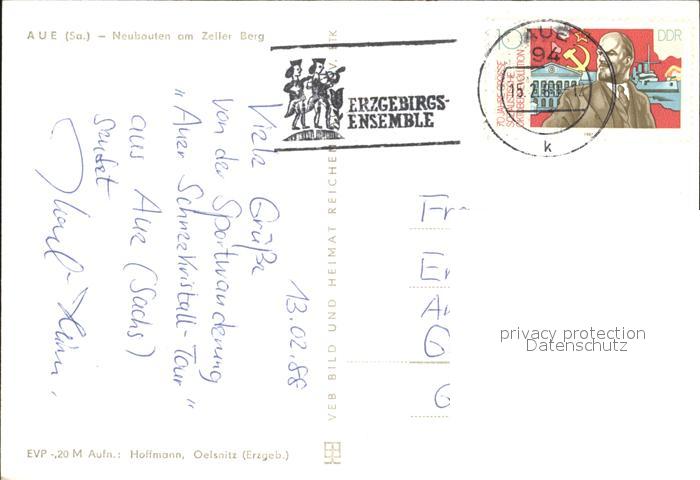 AUE (Sa.) — Neubauten am Zeller Berg
13.02.88
Viele Grüße
von der Sportwanderung
„Auer Schneekristall-Tour"
aus Aue (Sachs)
sendet
VEB BILD UND HEIMAT REICHEN
ERZGEBIRGS-
ENSEMBLE
AUE
94
k
10
DDR
70 JAHRE GROSSE
SOZIALISTISCHE
OKTOBERREVOLUTION
Fr
Er
A
G
G
privacy protection
Datenschutz
EVP -,20 M Aufn.: Hoffmann, Oelsnitz (Erzgeb.)